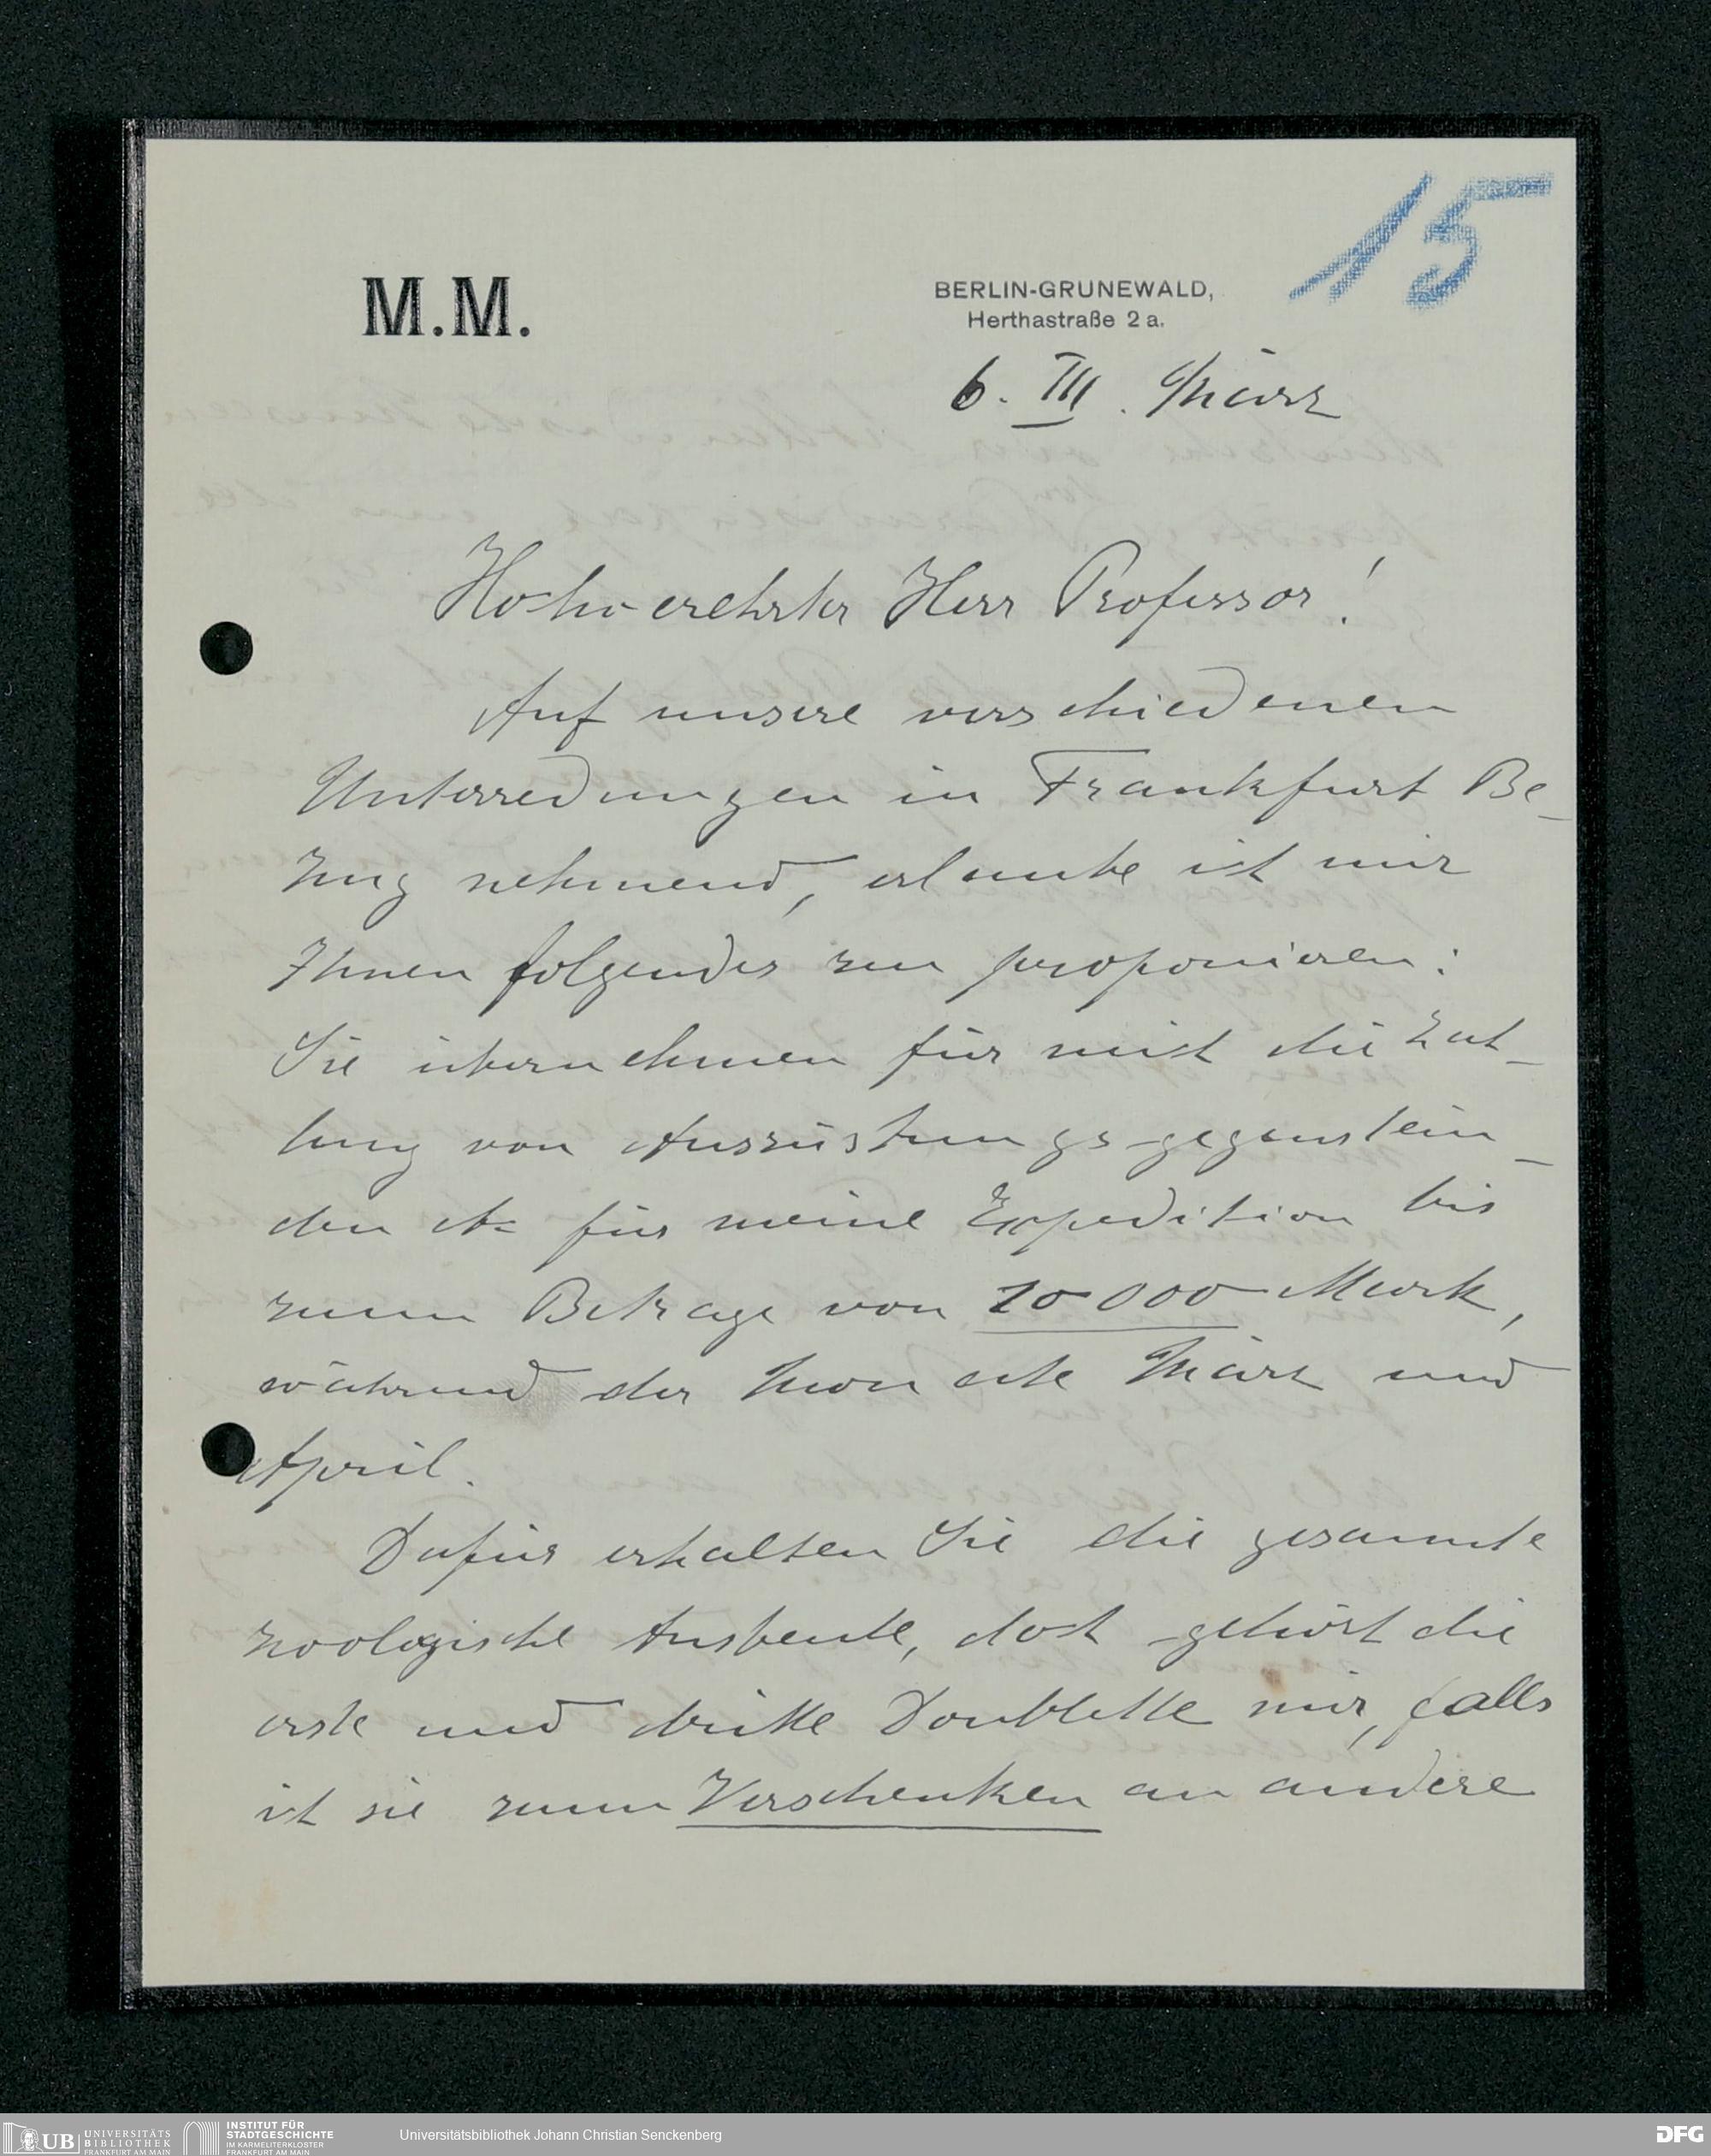 15
M.M.
BERLIN-GRUNEWALD,
Herthastraße 2 a.
6. III. März
Hochverehrter Herr Professor!
Auf unsere verschiedenen
Unterredungen in Frankfurt Be-
zug nehmend, erlaube ich mir
Ihnen folgendes zu proponieren:
Sie übernehmen für mich die Zah-
lung von Ausrüstungsgegenstän-
den etc für meine Expedition bis
zum Betrage von 20000 Mark,
während der Monate März und
April.
Dafür erhalten Sie die gesammte
zoologische Ausbeute, doch gehört die
erste und dritte Doublette mir, falls
ich sie zum Verschenken an andere
UB UNIVERSITÄTS
BIBLIOTHEK
FRANKFURT AM MAIN
INSTITUT FÜR
STADTGESCHICHTE
IM KARMELITERKLOSTER
FRANKFURT AM MAIN
Universitätsbibliothek Johann Christian Senckenberg
DFG